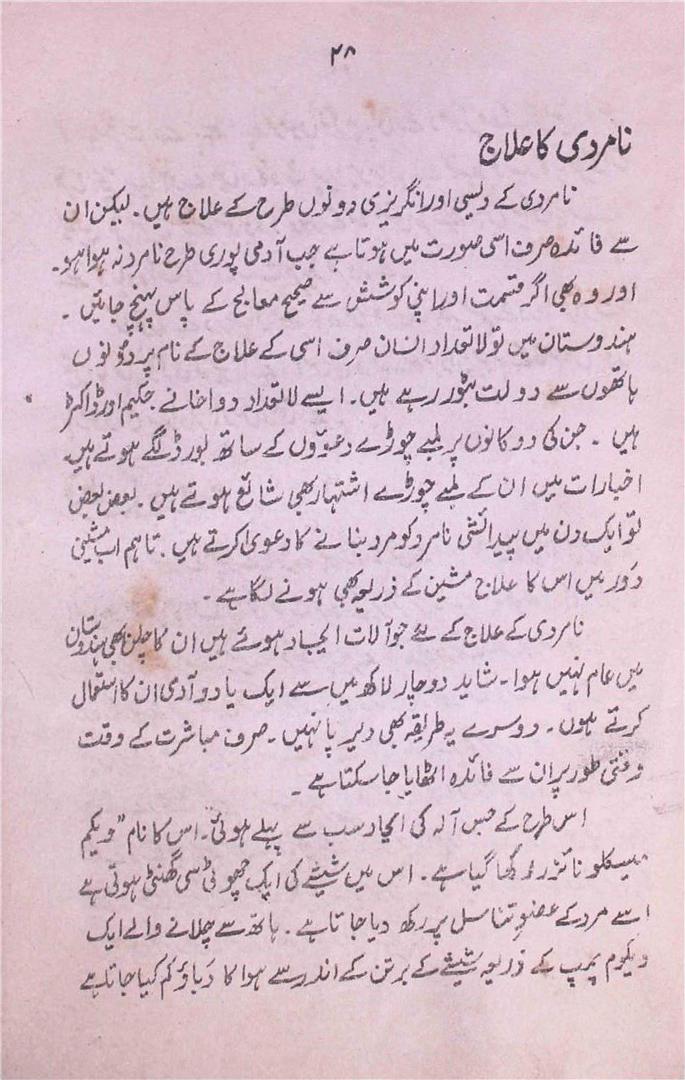 ۴۸
نامردی کا علاج
نامردی کے دیسی اور انگریزی دونوں طرح کے علاج ہیں۔ لیکن ان
سے فائدہ صرف اسی صورت میں ہوتا ہے جب آدمی پوری طرح نامرد نہ ہوا ہو۔
اور وہ بھی اگر قسمت اور اپنی کوشش سے صحیح معالج کے پاس پہنچ جائیں۔
ہندوستان میں تو لاتعداد انسان صرف اسی کے علاج کے نام پر دونوں
ہاتھوں سے دولت بٹور رہے ہیں۔ ایسے لاتعداد دواخانے، حکیم اور ڈاکٹر
ہیں۔ جن کی دوکانوں پر لمبے چوڑے دعوؤں کے ساتھ بورڈ لگے ہوتے ہیں
اخبارات میں ان کے لمبے چوڑے اشتہار بھی شائع ہوتے ہیں۔ بعض بعض
تو ایک دن میں پیدائشی نامرد کو مرد بنانے کا دعویٰ کرتے ہیں۔ تاہم اب مشینی
دَور میں اس کا علاج مشین کے ذریعہ بھی ہونے لگا ہے۔
نامردی کے علاج کے لئے جو آلات ایجاد ہوئے ہیں ان کا چلن بھی ہندوستان
میں عام نہیں ہوا۔ شاید دو چار لاکھ میں سے ایک یا دو آدمی ان کا استعمال
کرتے ہوں۔ دوسرے یہ طریقہ بھی دیرپا نہیں۔ صرف مباشرت کے وقت
وقتی طور پر ان سے فائدہ اٹھایا جا سکتا ہے۔
اس طرح کے جس آلہ کی ایجاد سب سے پہلے ہوئی۔ اس کا نام "ویکم
رکھا گیا ہے۔ اس میں شیشے کی ایک چھوٹی سی گھنٹی ہوتی ہے
اسے مرد کے عضوِ تناسل پر رکھ دیا جاتا ہے۔ ہاتھ سے چلانے والے ایک
ویکیوم پمپ کے ذریعہ شیشے کے برتن کے اندر سے ہوا کا دَباؤ کم کیا جاتا ہے